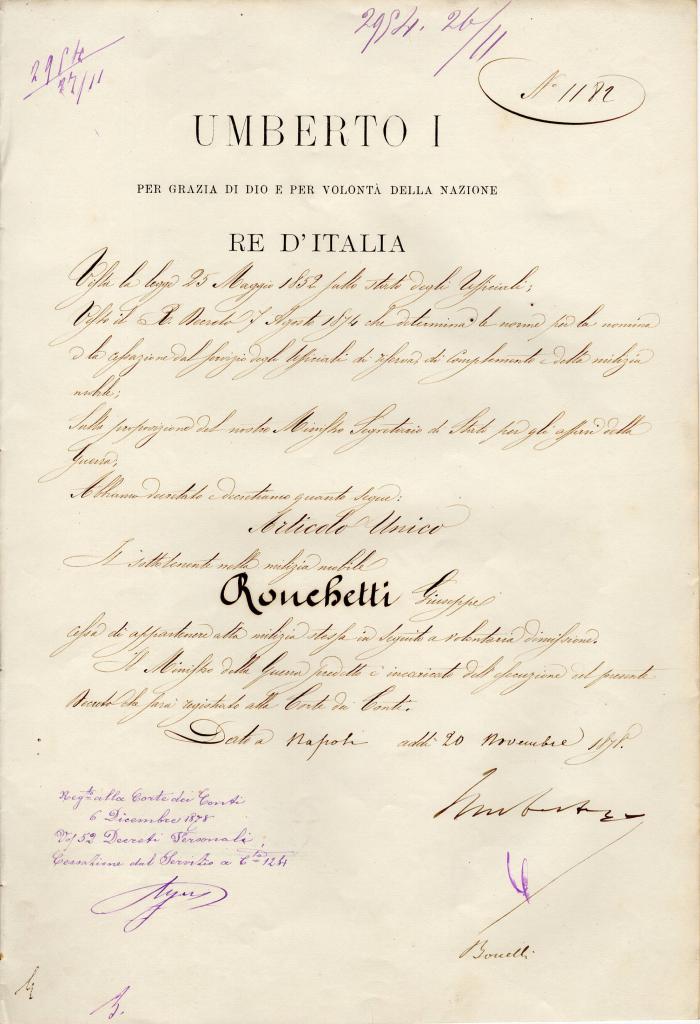 2954. 26/11
2954
27/11
N° 1182
UMBERTO I
PER GRAZIA DI DIO E PER VOLONTÀ DELLA NAZIONE
RE D'ITALIA
Vista la legge 25 Maggio 1852 sullo stato degli Ufficiali;
Visto il R. Decreto 7 Agosto 1874 che determina le norme per la nomina
e la cessazione dal servizio degli Ufficiali di riserva, di complemento e della milizia
mobile;
Sulla proposizione del nostro Ministro Segretario di Stato per gli affari della
Guerra;
Abbiamo decretato e decretiamo quanto segue:
Articolo Unico
Il sottotenente nella milizia mobile
Ronchetti Giuseppe
cessa di appartenere alla milizia stessa in seguito a volontaria dimissione.
Il Ministro della Guerra predetto è incaricato dell'esecuzione del presente
Decreto che sarà registrato alla Corte dei Conti.
Dato a Napoli addì 20 Novembre 1878.
Umberto
Regto alla Corte dei Conti
6 Dicembre 1878
Vol 52 Decreti Personali
Cessazione dal Servizio a Cte 124
Bonelli